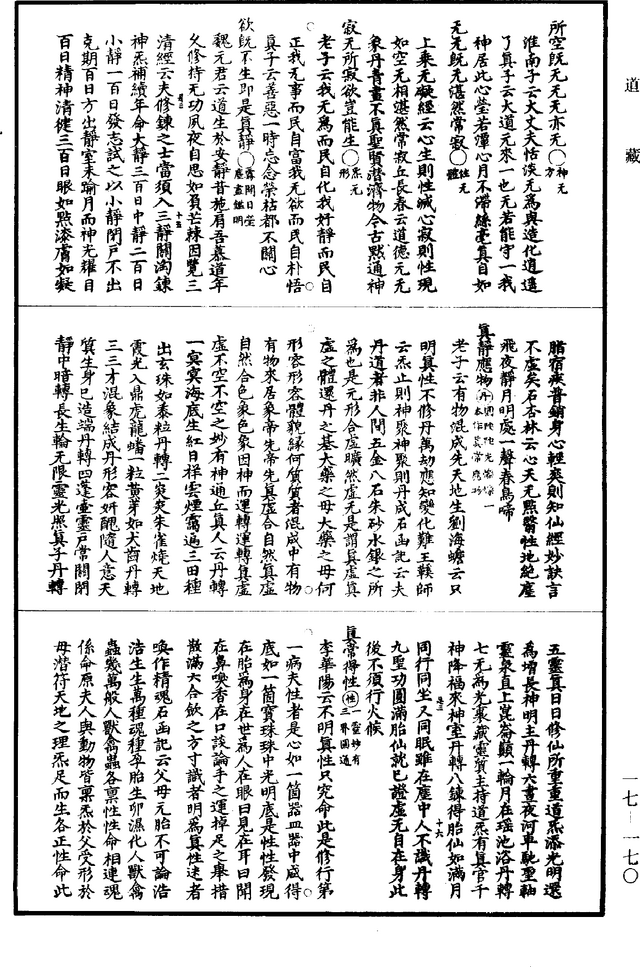 道藏
所空既无无无亦无○神无方
淮南子云大丈夫恬淡无為與造化逍遙
了真子云大道元來一也无若能守一我
神居此心瑩若潭心月不滯絲毫真自如
无无既无湛然常寂○性无體
上乘无礙經云心生則性滅心寂則性現
如空无相湛然常寂丘長春云道德元无
象丹青畫不真聖賢潛濟物今古默通神
寂无所寂欲豈能生○炁无形
老子云我无為而民自化我好靜而民自
正我无事而民自富我无欲而民自朴悟
真子云善惡一時忘念榮枯都不關心
欲既不生即是真靜
魏元君云道生於安靜昔施肩吾慕道年
久修持无功夙夜自思如負芒棘因覽三
清經云夫修鍊之士當須入三靜關淘鍊
神炁補續年命大靜三百日中靜二百日
小靜一百日發志試之以小靜閉戶不出
克期百日方出靜室未踰月而神光耀目
百日精神清健三百日眼如點漆膚如凝
脂宿疾普銷身心輕爽則知仙經妙訣言
不虛矣石杏林云心天无點翳性地絕塵
飛夜靜月明處一聲春鳥啼
真靜應物
老子云有物混成先天地生劉海蟾云只
明真性不修丹萬劫應知變化難王䫂師
云炁止則神聚神聚則丹成石函記云夫
丹道者非人間五金八石朱砂水銀之所
為也是元形合虛曠然虛无是謂真虛真
虛之體還丹之基大藥之母大藥之母何
形容形容體貌緣何質質者混成中有物
有物來居象帝先帝先真虛合自然真虛
自然合色象色象因神而運轉運轉真虛
虛不空不空之妙有神通丘真人云丹轉
一冥冥海底生紅日祥雲煙靄遍三田種
出玄珠如黍粒丹轉二炎炎朱雀燒天地
霞光入鼎虎龍蟠一粒黃芽如大齒丹轉
三三才混象結成丹形容妍醜隨人意天
箕生身已造端丹轉四蓬壺靈戶常關閉
靜中暗轉長生輪无限靈光照真子丹轉
五靈真日日修仙所重重道炁添光明還
為增長神明主丹轉六晝夜河車馳聖軸
靈泉直上崑崙顛一輪月在瑶池浴丹轉
七无為光裹藏靈質主持道炁有真官千
神降福來神室丹轉八鍊得胎仙如滿月
同行同坐又同眠雖在塵中人不識丹轉
九聖功圓滿胎仙就已證虛无自在身此
後不須行火候
真常得性
李華陽云不明真性只究命此是修行第
一病夫性者是心如一箇器皿器中咸得
底如一箇寶珠珠中光明底是性性發現
在胎為身在世為人在眼曰見在耳曰聞
在鼻嗅香在口談論手之運掉足之舉措
散滿六合歛之方寸識者明為真性迷者
喚作精魂石函記云父母元胎不可論浩
浩生生萬種魂種孕胎生卵濕化人獸禽
蟲幾萬般人獸禽蟲各稟性性命相連魂
係命原夫人與動物皆稟炁於父受形於
母潛符天地之理炁足而生各正性命此
一七—一七〇